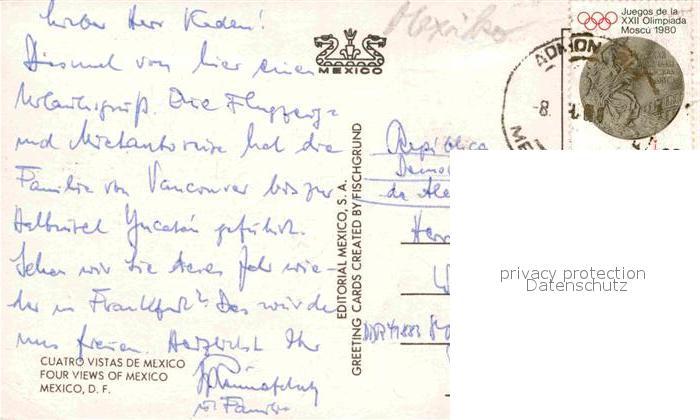 Lieber Herr Kaden!
Diesmal von hier einen
Urlaubsgruß. Die Flugzeug-
und Mietautoreise hat die
Familie von Vancouver bis zur
Halbinsel Yucatán geführt.
Sehen wir Sie dieses Jahr wie-
der in Frankfurt? Das würde
uns freuen. Herzlichst Ihr
u. Familie
CUATRO VISTAS DE MEXICO
FOUR VIEWS OF MEXICO
MEXICO, D. F.
MEXICO
EDITORIAL MEXICO, S. A.
GREETING CARDS CREATED BY FISCHGRUND
Mexiko
Juegos de la
XXII Olimpiada
Moscú 1980
ADMON
-8.
ME
República
Demo
da Ale
Herr
W
privacy protection
Datenschutz